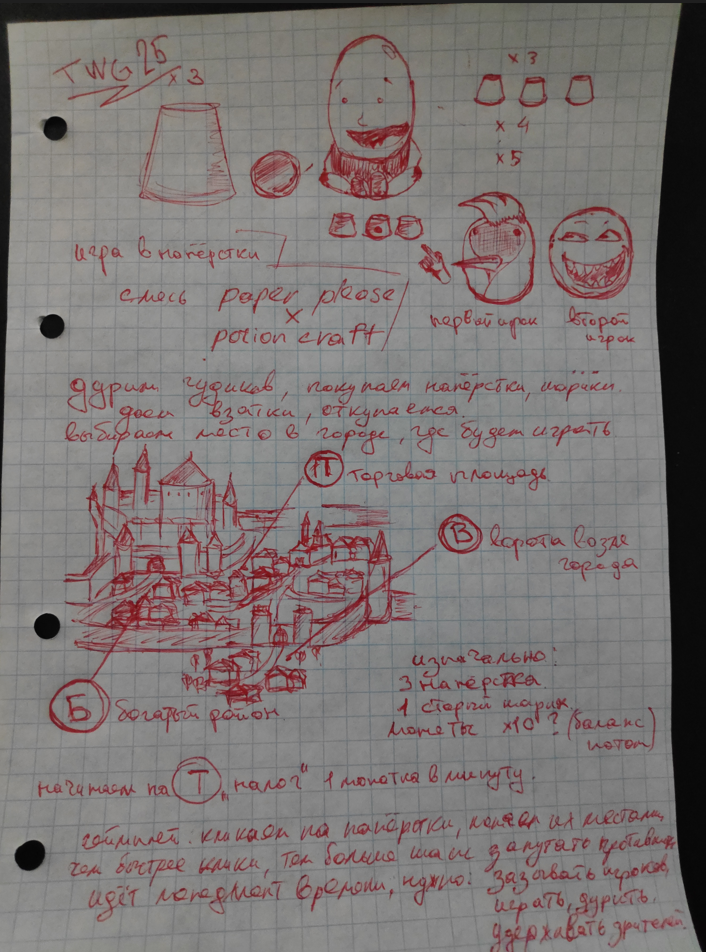 TWG 25
x 3
x 3
x 4
x 5
игра в напёрстки
смесь paper please
x
potion craft
первый игрок
второй
игрок
дурим чудиков, покупаем напёрстки, шарики.
даем взятки, откупаемся.
выбираем место в городе, где будет играть
П торговая площадь
В ворота возле
города
Б богатый район
изначально:
3 напёрстка
1 старый шарик
монеты x10? (баланс
потом)
начинаем на Т „налог“ 1 монетка в минуту.
геймплей: кликаем на напёрстки, меняем их местами,
чем быстрее клики, тем больше шанс запутать противника
идёт менеджмент времени, нужно: зазывать игроков,
играть, дурить,
удерживать зрителей.